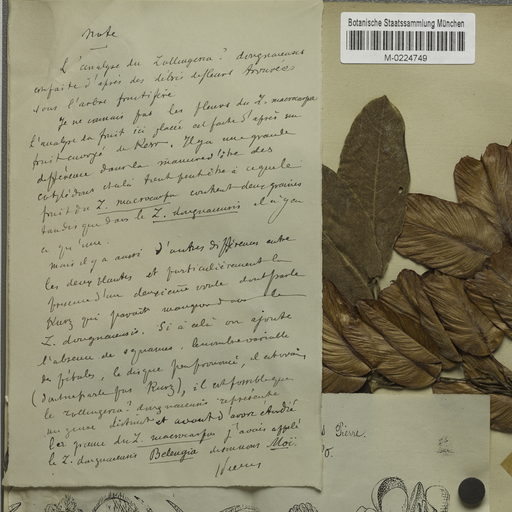 Note
L'analyse du Zollingeria? dongnaiensis
est faite d'après des débris de fleurs trouvées
sous l'arbre fructifère
Je ne connais pas les fleurs du Z. macrocarpa
L'analyse du fruit ici placée est faite d'après un
fruit envoyé de Kew. Il y a une grande
différence dans la manière d'être des
cotylédons et cela tient peut être à ce que le
fruit du Z. macrocarpa contient deux graines
tandis que dans le Z. dongnaiensis il n'y en
a qu'une.
Mais il y a aussi d'autres différences entre
les deux plantes et particulièrement la
présence d'un deuxième ovule dont parle
Kurz qui paraît manquer dans le
Z. dongnaiensis. Si à cela on ajoute
l'absence de squames, le nombre variable
des pétales, le disque peu prononcé, il est vrai,
(dont ne parle pas Kurz), il est possible que
le Zollingeria? dongnaiensis représente
un genre distinct et avant d'avoir étudié
les graines du Z. macrocarpa j'avais appelé
le Z. dongnaiensis Belengia du nom Moï.
Pierre
Botanische Staatssammlung München
M-0224749
Pierre.